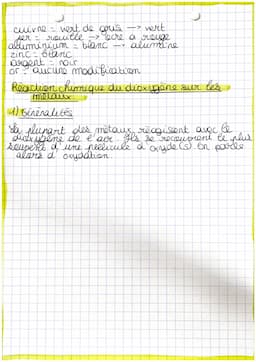 cuivre = vert de gris → vert
fer = rouille → ocre à rouge
alluminium = blanc → alumine
zinc = blanc
argent = noir
or = aucune modification
Réaction chimique du dioxygène sur les
métaux.
1) Généralités
La plupart des métaux réagissent avec le
dioxygène de l'air. Ils se recouvrent le plus
souvent d'une pellicule d'oxyde(s). On parle
alors d'oxydation.